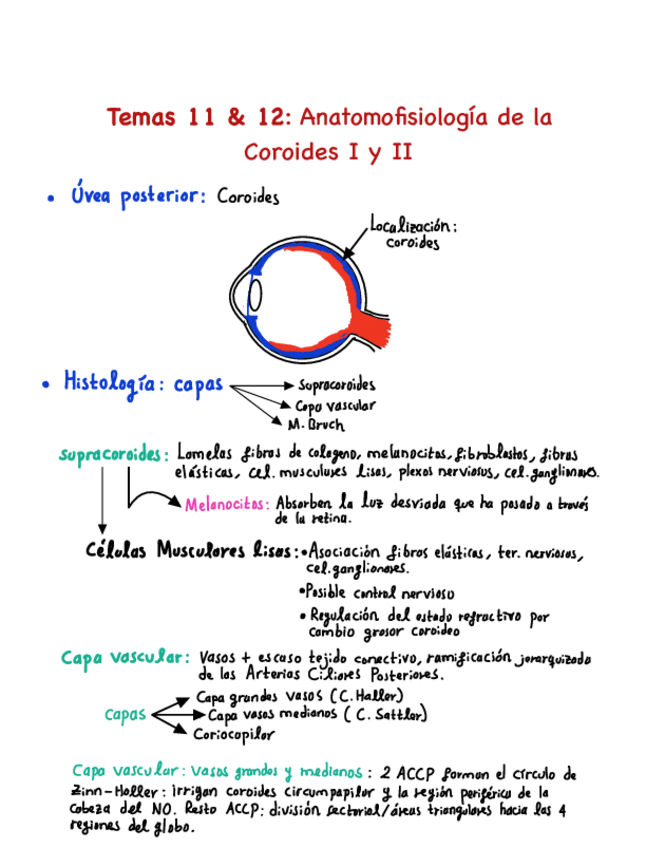 Temas 11 & 12: Anatomofisiología de la
Coroides I y II
• Úvea posterior: Coroides
Localización:
coroides
• Histología: capas
Supracoroides
Capa vascular
M. Bruch
Supracoroides: Lamelas fibras de colageno, melanocitos, fibroblastos, fibras
elásticas, cel. musculares lisas, plexos nerviosos, cel. ganglionares.
Melanocitos: Absorben la luz desviada que ha pasado a través
de la retina.
Células Musculares lisas: • Asociación fibras elásticas, ter. nerviosos,
cel. ganglionares.
• Posible control nervioso
• Regulación del estado refractivo por
cambio grosor coroideo
Capa vascular: Vasos + escaso tejido conectivo, ramificación jerarquizada
de las Arterias Ciliares Posteriores.
capas
Capa grandes vasos (C. Haller)
Capa vasos medianos (C. Sattler)
Coriocapilar
Capa vascular: Vasos grandes y medianos: 2 ACCP forman el círculo de
Zinn-Haller: irrigan coroides circumpapilar y la región periférica de la
cabeza del NO. Resto ACCP: división sectorial/áreas triangulares hacia las 4
regiones del globo.